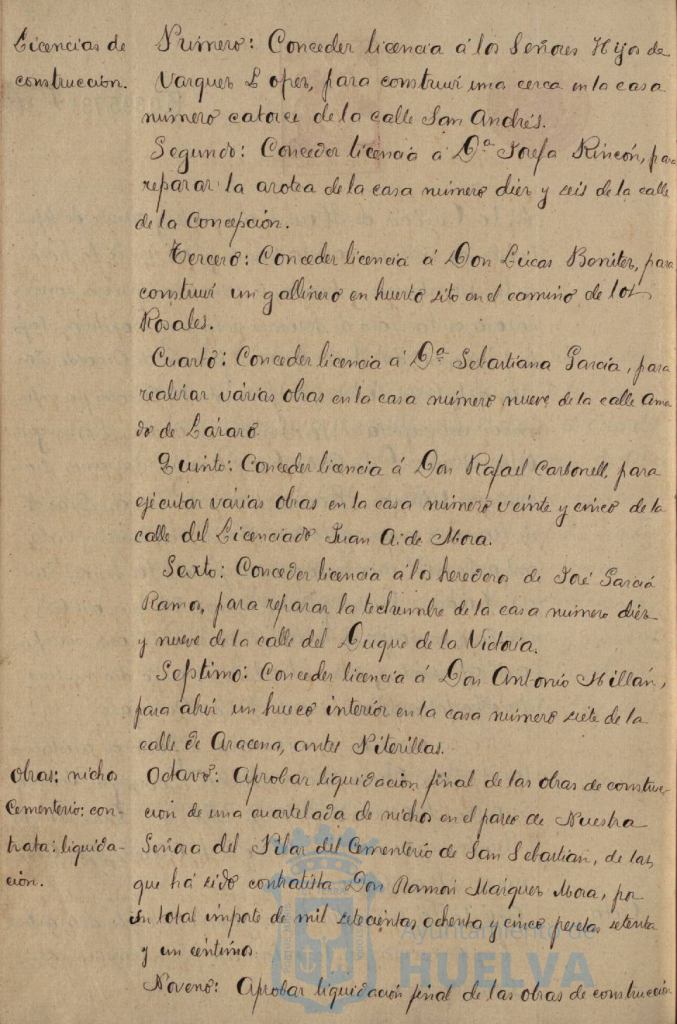 Licencias de
construcción.
Primero: Conceder licencia á los Señores Hijos de
Vazquez Lopez, para construir una cerca en la casa
número catorce de la calle San Andrés.
Segundo: Conceder licencia á Dª Josefa Rincón, para
reparar la azotea de la casa número diez y seis de la calle
de la Concepción.
Tercero: Conceder licencia á Don Lucas Benitez, para
construir un gallinero en huerto sito en el camino de los
Rosales.
Cuarto: Conceder licencia á Dª Sebastiana García, para
realizar várias obras en la casa número nueve de la calle Ama
do de Lázaro.
Quinto: Conceder licencia á Don Rafael Carbonell, para
ejecutar várias obras en la casa número veinte y cinco de la
calle del Licenciado Juan A. de Mora.
Sexto: Conceder licencia á los herederos de José García
Ramos, para reparar la techumbre de la casa número diez
y nueve de la calle del Duque de la Victoria.
Septimo: Conceder licencia á Don Antonio Millán,
para abrir un hueco interior en la casa número siete de la
calle de Aracena, antes Piterillas.
Obras: nichos
Cementerio: con-
trata: liquida-
ción.
Octavo: Aprobar liquidación final de las obras de construc-
cion de una cuartelada de nichos en el paseo de Nuestra
Señora del Pilar del Cementerio de San Sebastian, de las
que há sido contratista Don Ramón Maiquez Mora, por
su total importe de mil setecientas ochenta y cinco pesetas setenta
y un centimos.
Noveno: Aprobar liquidación final de las obras de construcción
Ayuntamiento de
HUELVA